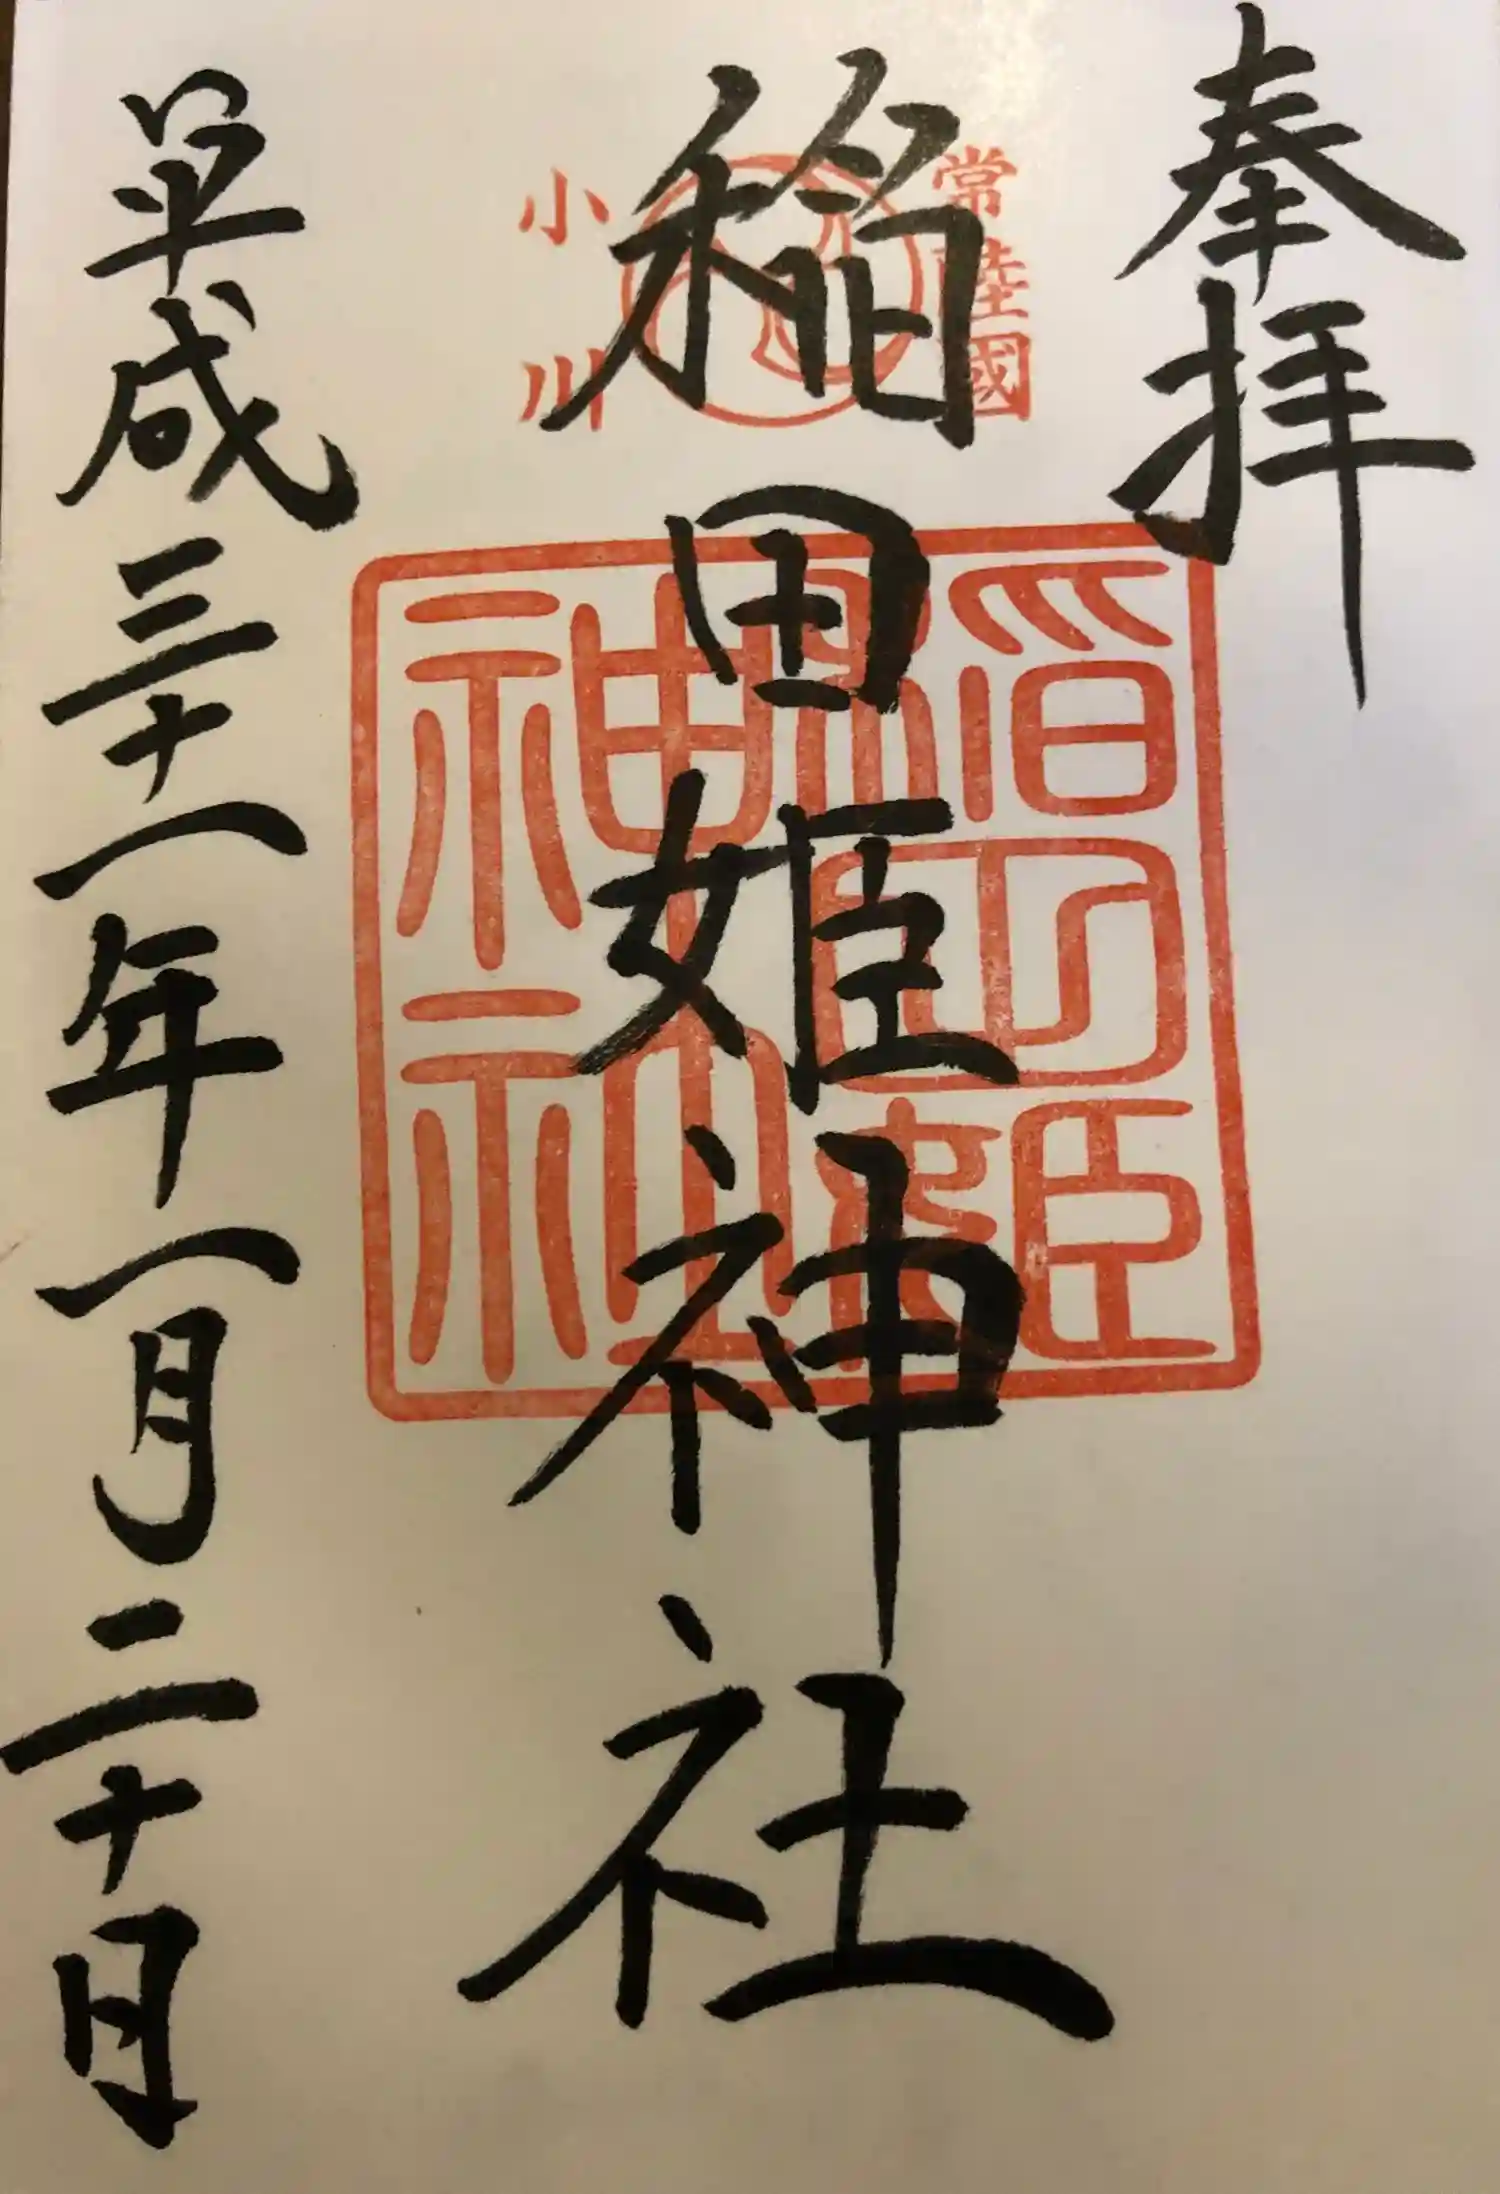 奉拝
常陸國
稲田姫神社
小川
平成三十一年一月二十日